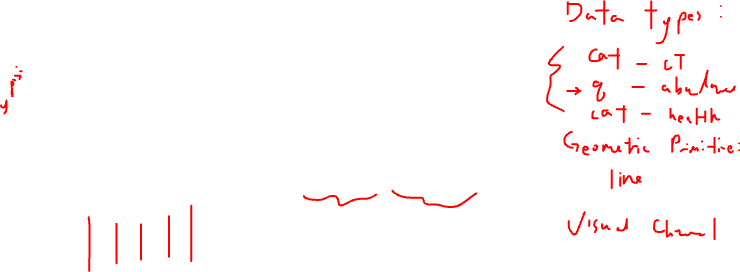 Data types:
cat - cT
→ q -
cat - health
Geometric Primitive:
line
Visual Channel